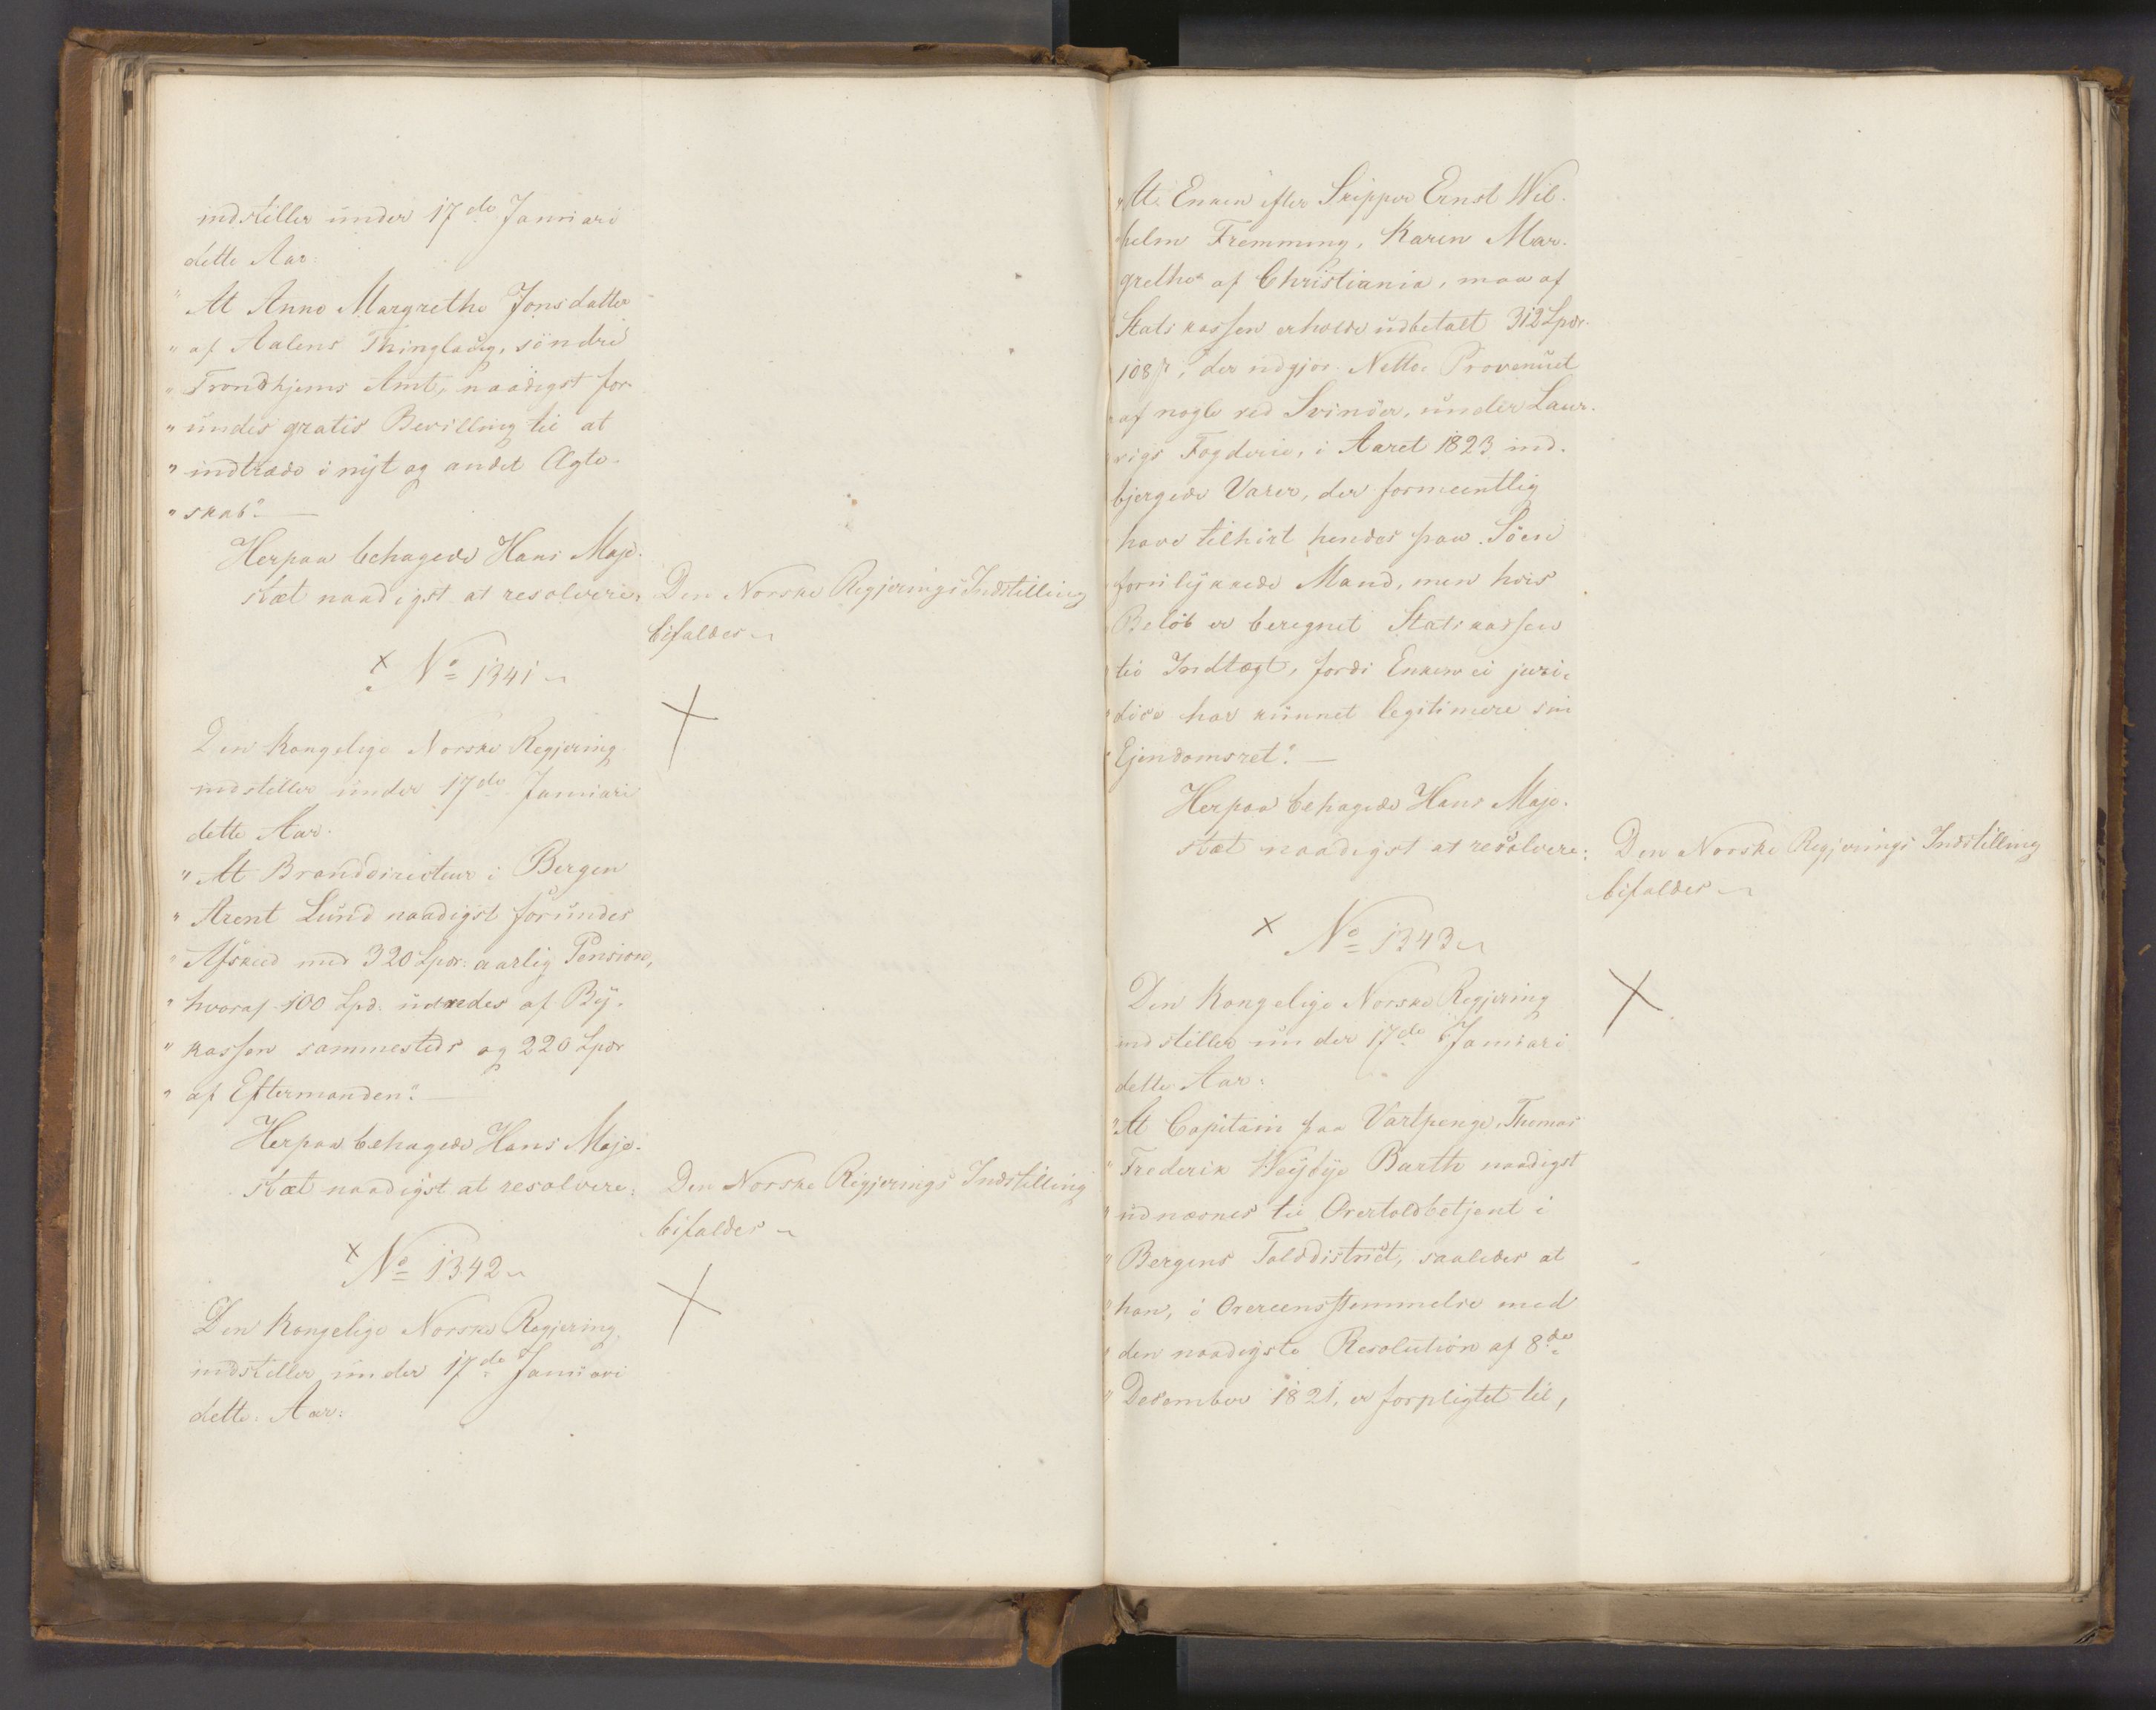 indstiller under 17de Januari
dette Aar:
"At Anne Margrethe Jonsdatter
"af Aalens Thinglaug, söndre
"Trondhjems Amt, naadigst for-
"undes gratis Bevilling til at
"indtræde i nyt og andet Ægte-
"skab". —
Herpaa behagede Hans Maje-
stæt naadigst at resolvere:
Den Norske Regjerings Indstilling
bifaldes
x No 1341
Den Kongelige Norske Regjering
indstiller under 17de Januari
dette Aar.
"At Branddirecteur i Bergen
"Arent Lund naadigst forundes
"Afskeed med 320 Spdr: aarlig Pension,
"hvoraf 100 Spd. udredes af By-
"kassen sammesteds og 220 Spdr
"af Eftermanden". —
Herpaa behagede Hans Maje-
stæt naadigst at resolvere:
Den Norske Regjerings Indstilling
bifaldes
x No 1342
Den Kongelige Norske Regjering
indstiller under 17de Januari
dette Aar:
"At Enken efter Skipper Ernst Wil-
"helm Fremming, Karen Mar-
grethe af Christiania, maa af
Statskassen erholde udbetalt 312 Spdr.
108 ß, der udgjör Netto Provenuet
"af nogle ved Svinöer, under Laur-
vigs Fogderie, i Aaret 1823 ind-
bjergede Varer, der formeentlig
have tilhört hendes paa Söen
forulykkede Mand, men hvis
Belöb er beregnet Statskassen
"til Indtægt, fordi Enken ei juri-
"dice har kunnet legitimere sin
"Ejendomsret". —
Herpaa behagede Hans Maje-
stæt naadigst at resolvere:
Den Norske Regjerings Indstilling
bifaldes
x No 1343
Den Kongelige Norske Regjering
indstiller under 17de Januari
dette Aar:
"At Capitain paa Vartpenge, Thomas
"Frederik Barth naadigst
"udnævnes til Overtoldbetjent i
"Bergens Tolddistrict, saaledes at
"han, i Overeensstemmelse med
"den naadigste Resolution af 8de
"December 1821, er forpligtet til,